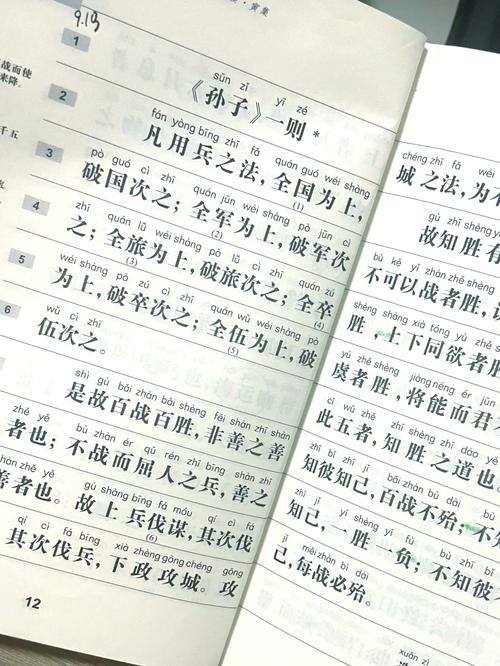 ·寅集
9.13
战而使
来降。
千五
1
sūn zǐ yī zé
《孙子》一则*
2
fán yòng bīng zhī fǎ quán guó wéi shàng
凡用兵之法，全国为上，
(1)
3
pò guó cì zhī quán jūn wéi shàng pò jūn cì
破国次之；全军为上，破军次
(2)
4
zhī quán lǚ wéi shàng pò lǚ cì zhī quán zú
之；全旅为上，破旅次之；全卒
(3) (4)
5
wéi shàng pò zú cì zhī quán wǔ wéi shàng pò
为上，破卒次之；全伍为上，破
(5)
6
wǔ cì zhī
伍次之。
shì gù bǎi zhàn bǎi shèng fēi shàn zhī shàn
是故百战百胜，非善之善
zhě yě bù zhàn ér qū rén zhī bīng shàn zhī
者也；不战而屈人之兵，善之
shàn zhě yě gù shàng bīng fá móu qí cì fá
善者也。故上兵伐谋，其次伐
(6)
qí cì fá bīng xià zhèng gōng chéng gōng
其次伐兵，下政攻城。攻
12
chéng zhī fǎ wéi
城之法，为不
gù zhī shèng yǒu
故知胜有
bù kě yǐ zhàn zhě shèng
不可以战者胜，
shèng shàng xià tóng yù zhě shèng
胜，上下同欲者胜
yú zhě shèng jiàng néng ér jūn
虞者胜，将能而君
cǐ wǔ zhě zhī shèng zhī dào yě
此五者，知胜之道也
zhī bǐ zhī jǐ bǎi zhàn bù dài bù
知彼知己，百战不殆；不
zhī jǐ yī shèng yī fù bù zhī bǐ
知己，一胜一负；不知彼
jǐ měi zhàn bì dài
己，每战必殆。
xuǎn zì